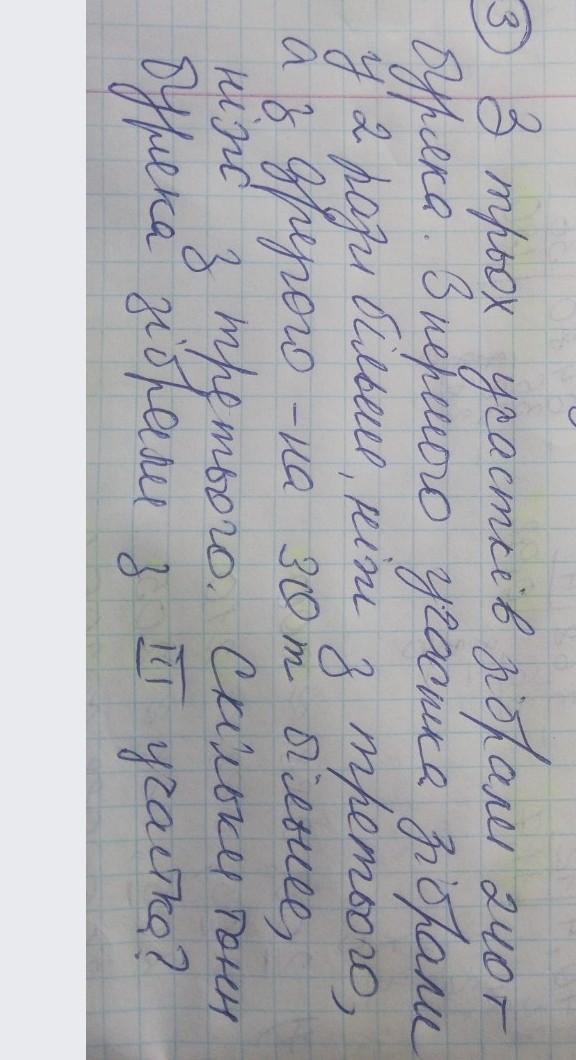 3
З трьох участків зібрали 240т
буряка. З першого участка зібрали
у 2 рази більше, ніж з третього,
а з другого - на 30т більше,
ніж з третього. Скільки тонн
буряка зібрали з III участка?